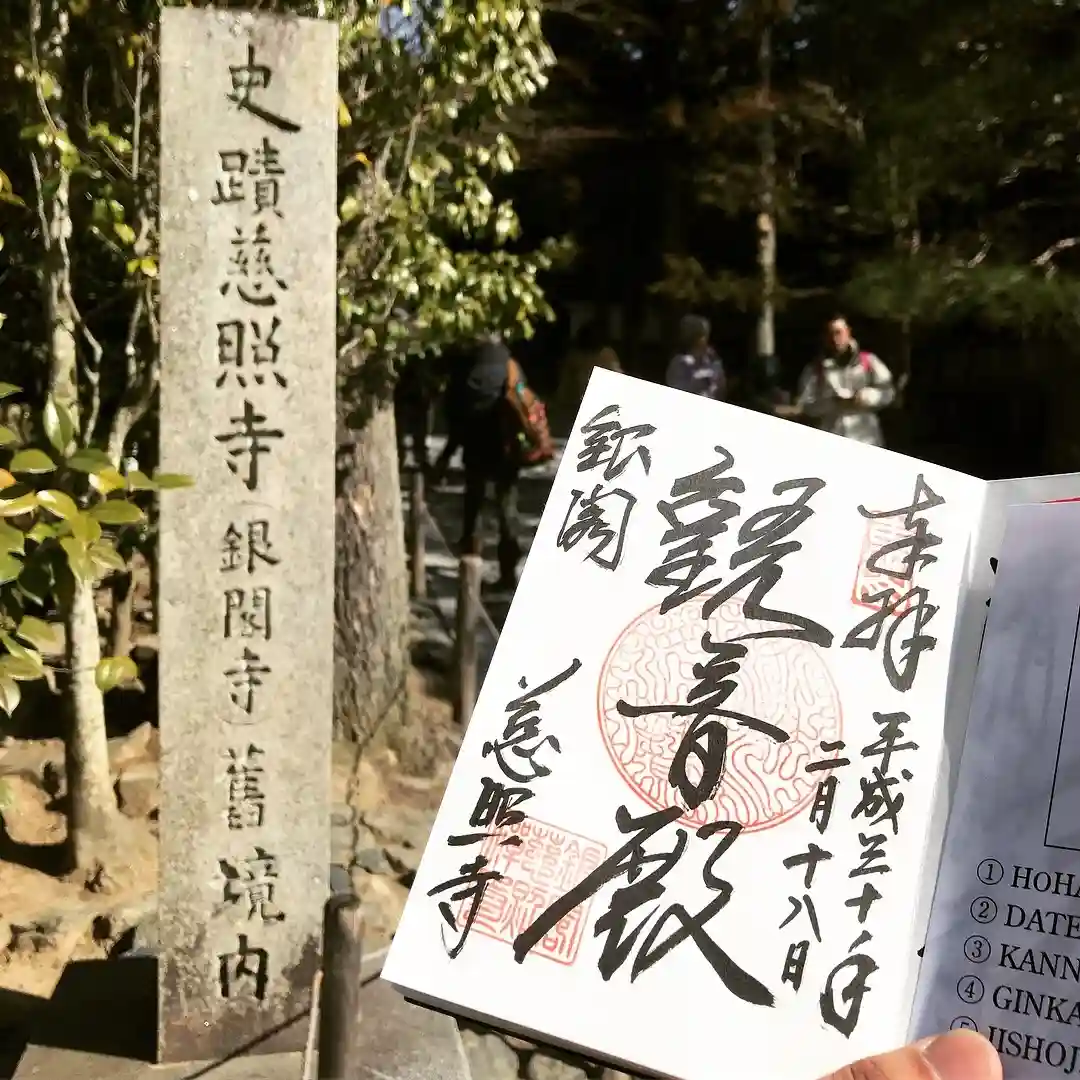 史蹟慈照寺(銀閣寺)舊境内
奉拝
平成三十年
二月十八日
觀音殿
銀閣
慈照寺
① HOHA
② DATE
③ KANN
④ GINKA
⑤ JISHOJ